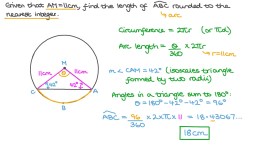 Given that AM=11cm, find the length of ABC rounded to the
nearest integer.
→arc
Circumference = 2πr (or πd)
Arc length = θ/360 × 2πr
→r=11cm
M
11cm
11cm
θ
42°
42°
C
A
B
m<CAM=42° (isosceles triangle
formed by two radii)
Angles in a triangle sum to 180°:
θ=180°-42°-42°=96°
ABC = 96/360 × 2×π×11 = 18.43067...
18cm